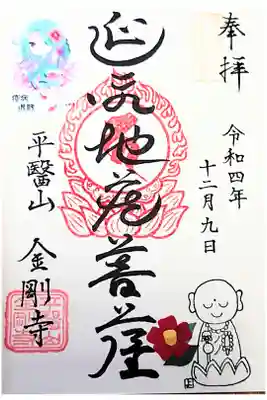 奉拝
令和四年
十二月九日
延命地蔵菩薩
平醫山
金剛寺